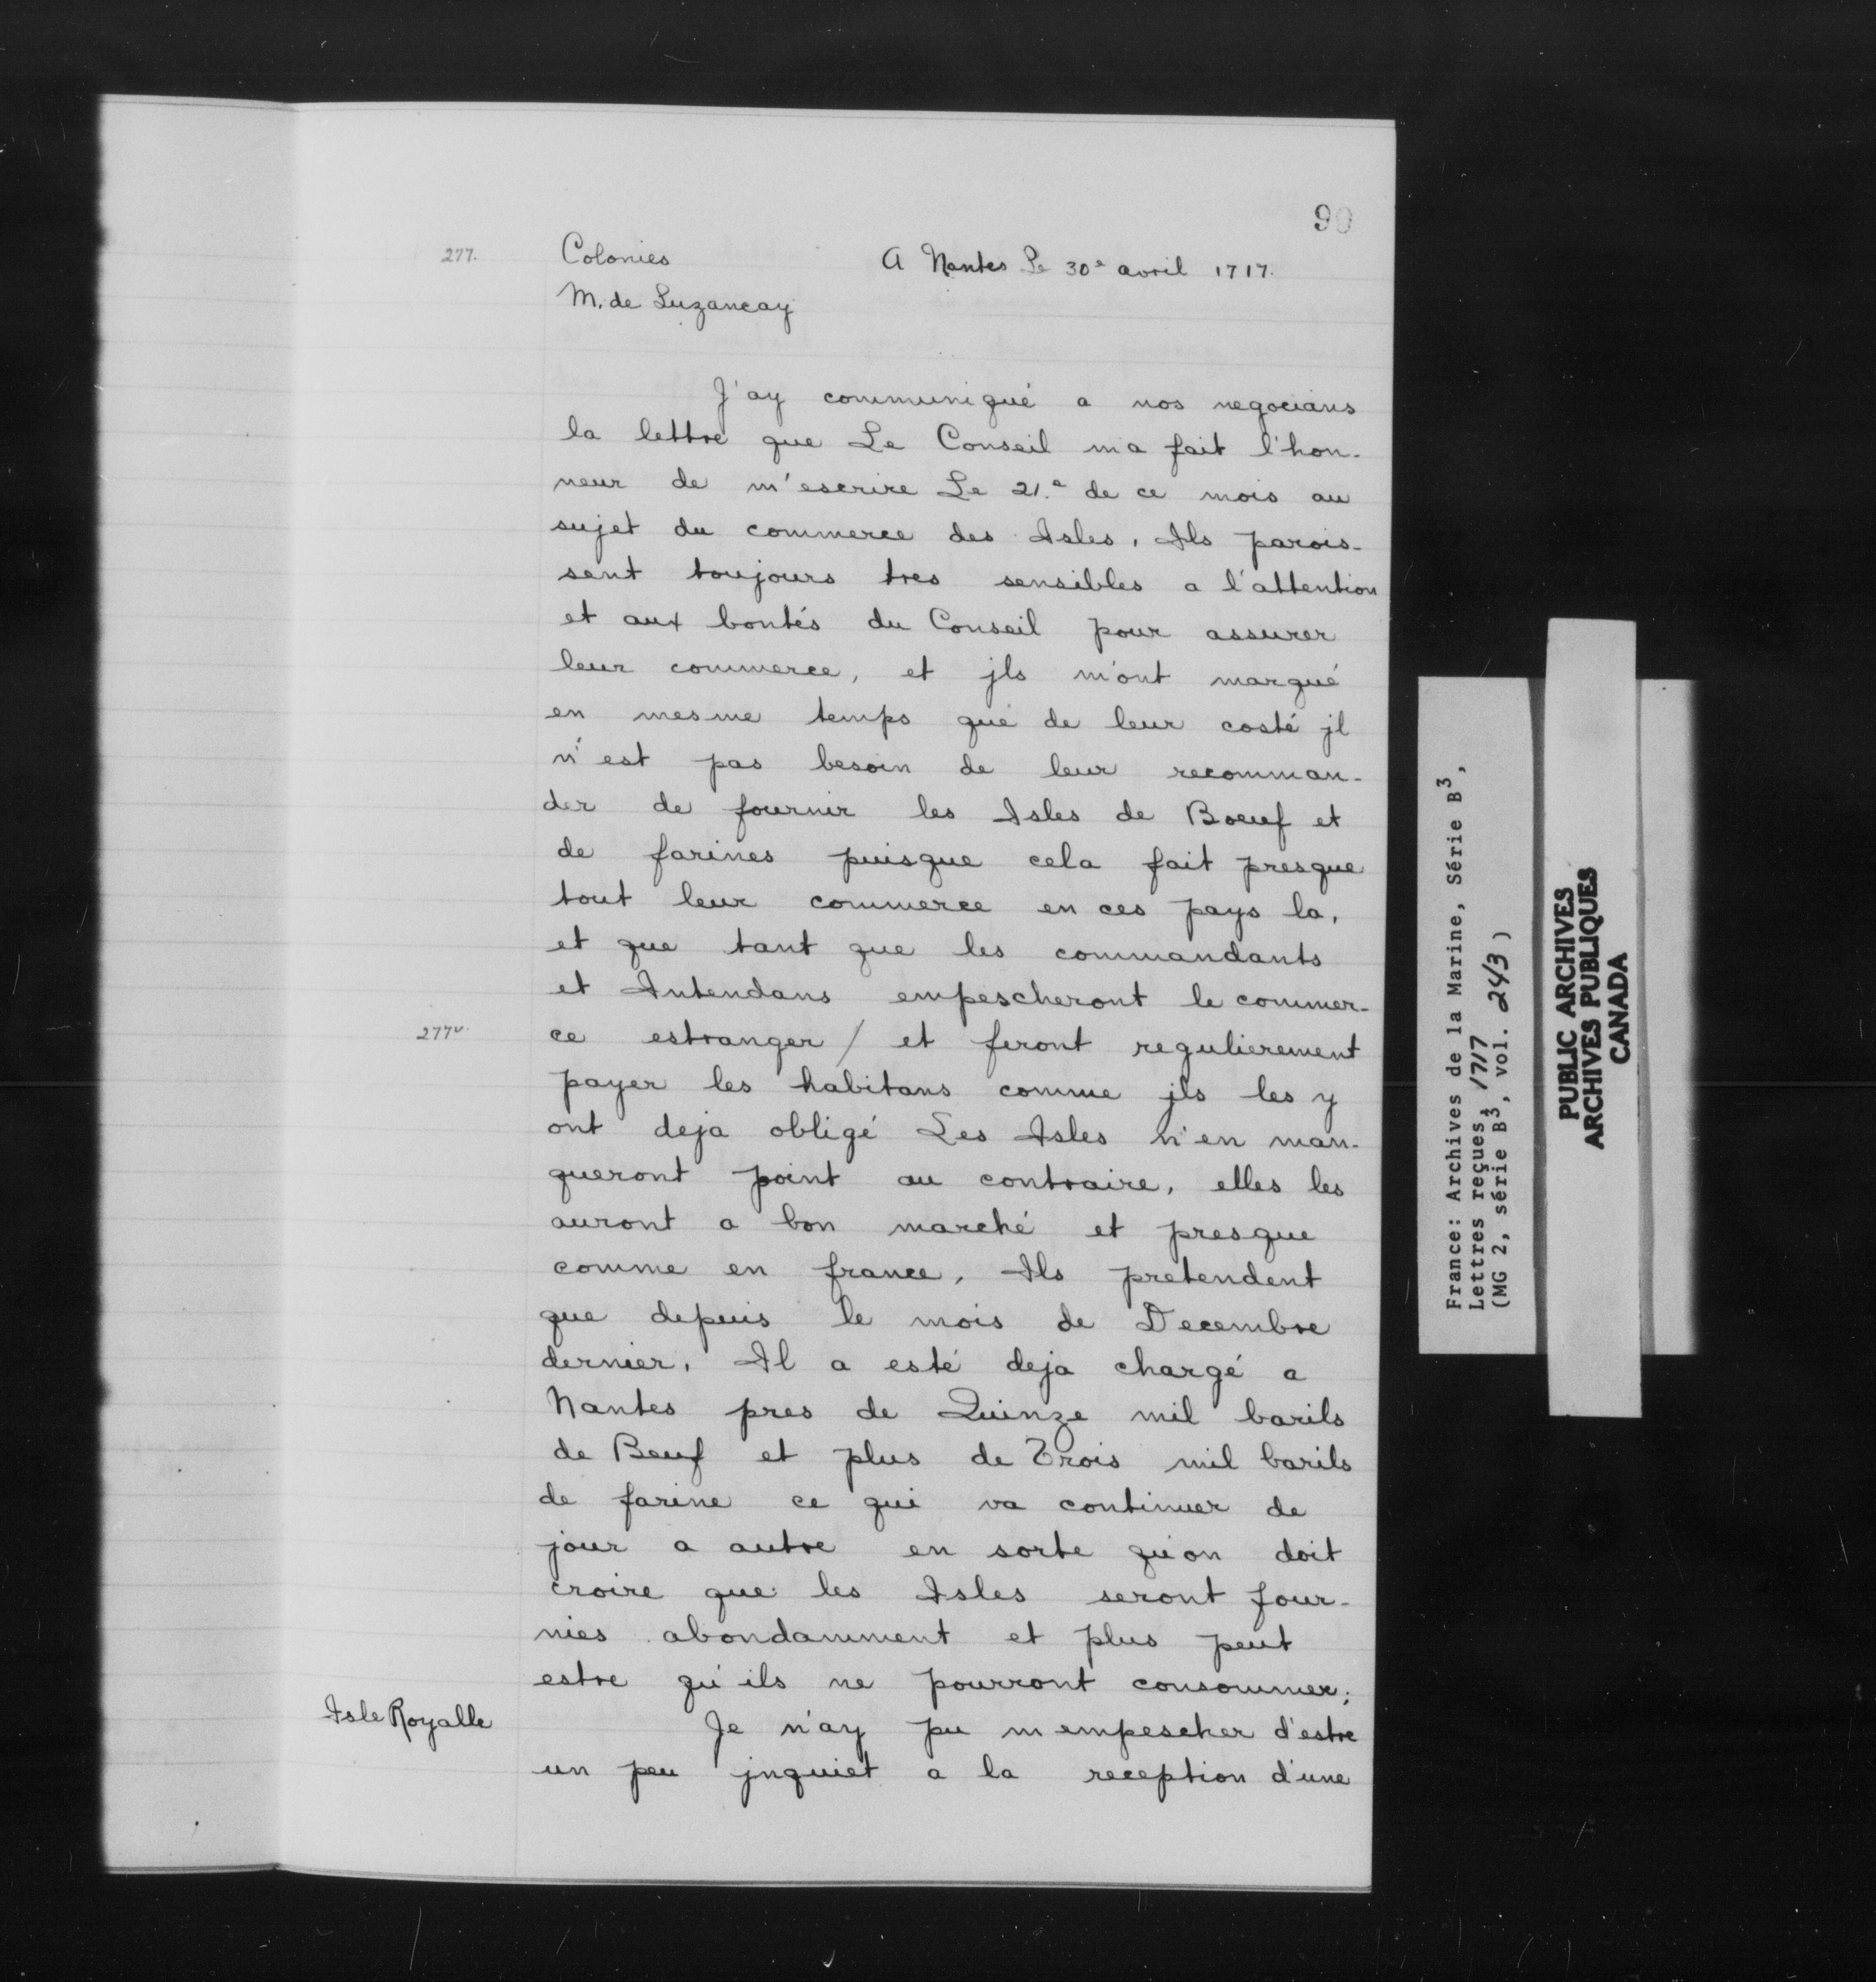 90
277.
Colonies
A Nantes Le 30e avril 1717.
M. de Luzancay
J'ay communiqué a nos negocians
la lettre que Le Conseil m'a fait l'hon-
neur de m'escrire Le 21.e de ce mois au
sujet du commerce des Isles, Ils parois-
sent toujours tres sensibles a l'attention
et aux bontés du Conseil pour assurer
leur commerce, et jls m'ont marqué
en mesme temps que de leur costé jl
n'est pas besoin de leur recomman-
der de fournir les Isles de Boeuf et
de farines puisque cela fait presque
tout leur commerce en ces pays la,
et que tant que les commandants
et Intendans empescheront le commer-
277v
ce estranger / et feront regulierement
payer les habitans comme jls les y
ont deja obligé Les Isles n'en man-
queront point au contraire, elles les
auront a bon marché et presque
comme en france, Ils pretendent
que depuis le mois de Decembre
dernier, Il a esté deja chargé a
Nantes pres de Quinze mil barils
de Beuf et plus de Trois mil barils
de farine ce qui va continuer de
jour a autre en sorte qu'on doit
croire que les Isles seront four-
nies abondamment et plus peut
estre qu'ils ne pourront consommer;
Isle Royalle
Je n'ay pu m'empescher d'estre
un peu jnquiet a la reception d'une
France: Archives de la Marine, Série B3,
Lettres reçues, 1717
(MG 2, série B3, vol. 243)
PUBLIC ARCHIVES
ARCHIVES PUBLIQUES
CANADA